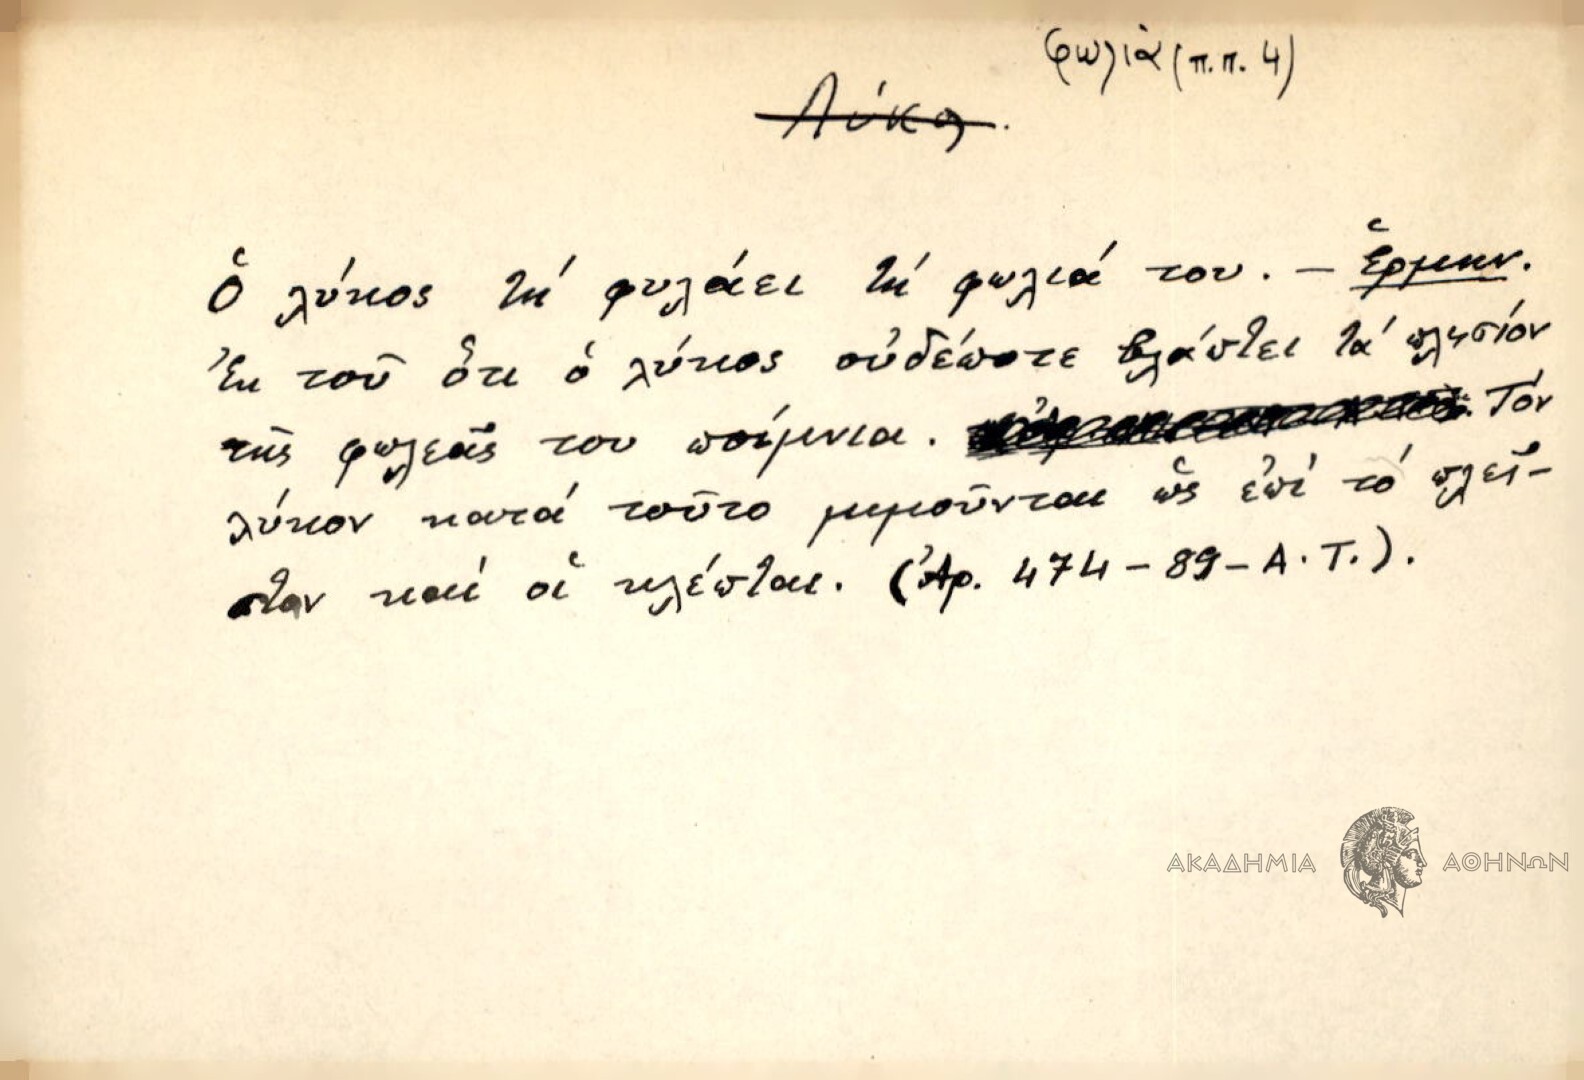 φωλιὰ (π.π. 4)
Λύκο.
Ὁ λύκος τή φυλάει τή φωλιά του. – Ἑρμην.
Ἐκ τοῦ ὅτι ὁ λύκος οὐδέποτε βλάπτει τά πλησίον
τῆς φωλεᾶς του ποίμνια. Τόν
λύκον κατά τοῦτο μιμοῦνται ὡς ἐπί τό πλεῖ-
στον καί οἱ κλέπται. (Ἀρ. 474-89-Α.Τ.).
ΑΚΑΔΗΜΙΑ ΑΘΗΝΩΝ